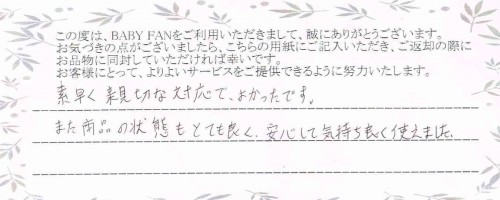 この度は、BABY FANをご利用いただきまして、誠にありがとうございます。
お気づきの点がございましたら、こちらの用紙にご記入いただき、ご返却の際に
お品物に同封していただければ幸いです。
お客様にとって、よりよいサービスをご提供できるように努力いたします。
素早く親切な対応で、よかったです。
また商品の状態もとても良く、安心して気持ち良く使えました。